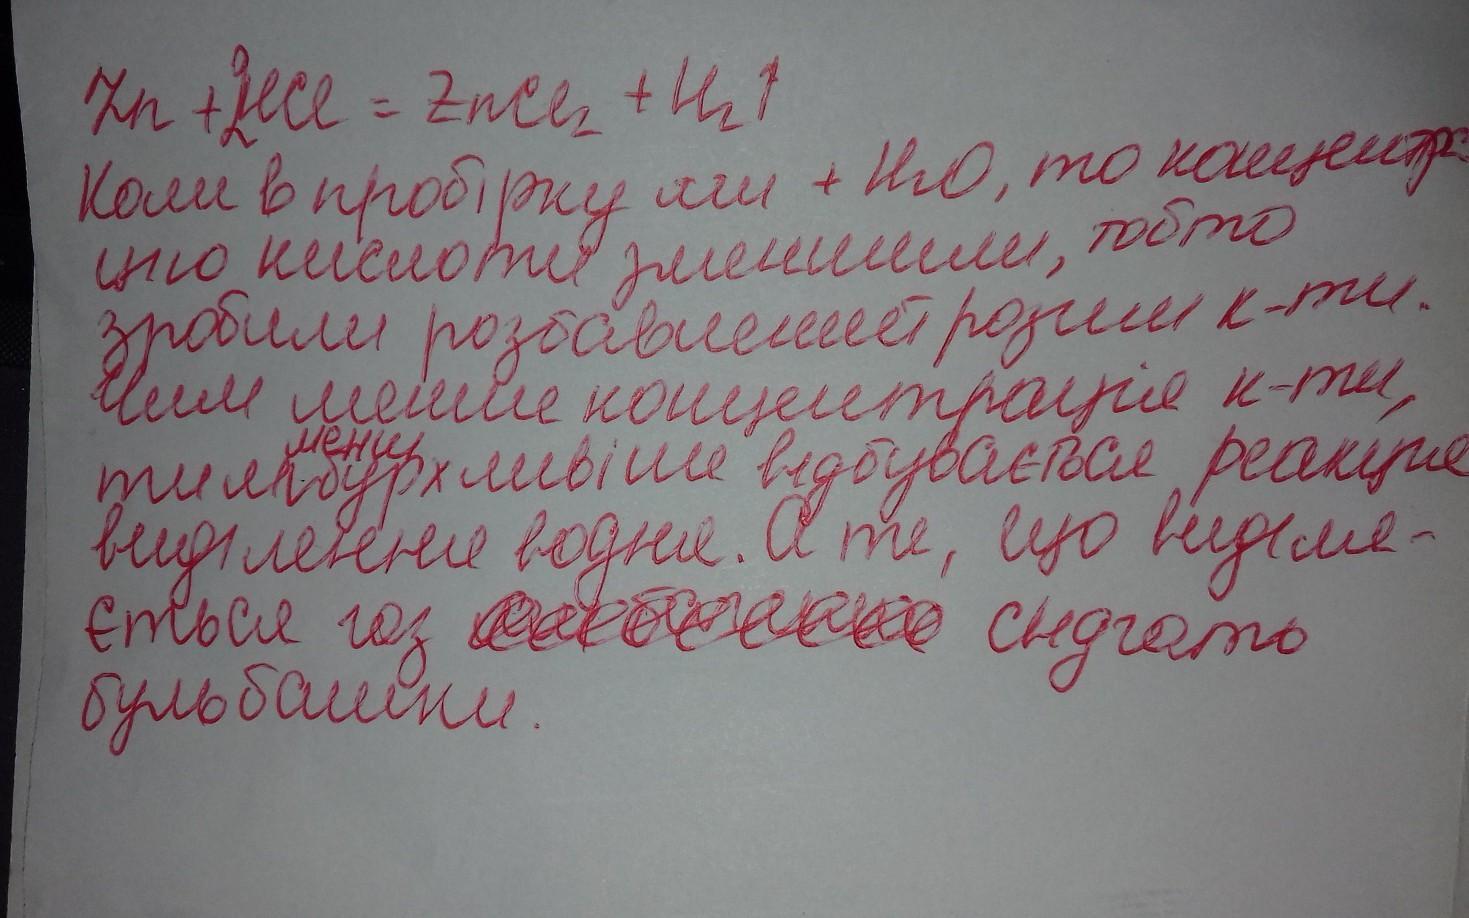 Zn + 2HCl = ZnCl₂ + H₂↑
Коли в пробірку ми + H₂O, то концентра
цію кислоти зменшили, тобто
зробили розбавлений розчин к-ти.
Чим менше концентрація к-ти,
менш
тим бурхливіше відбувається реакція
виділення водню. А те, що виділя-
ється газ свідчать
бульбашки.